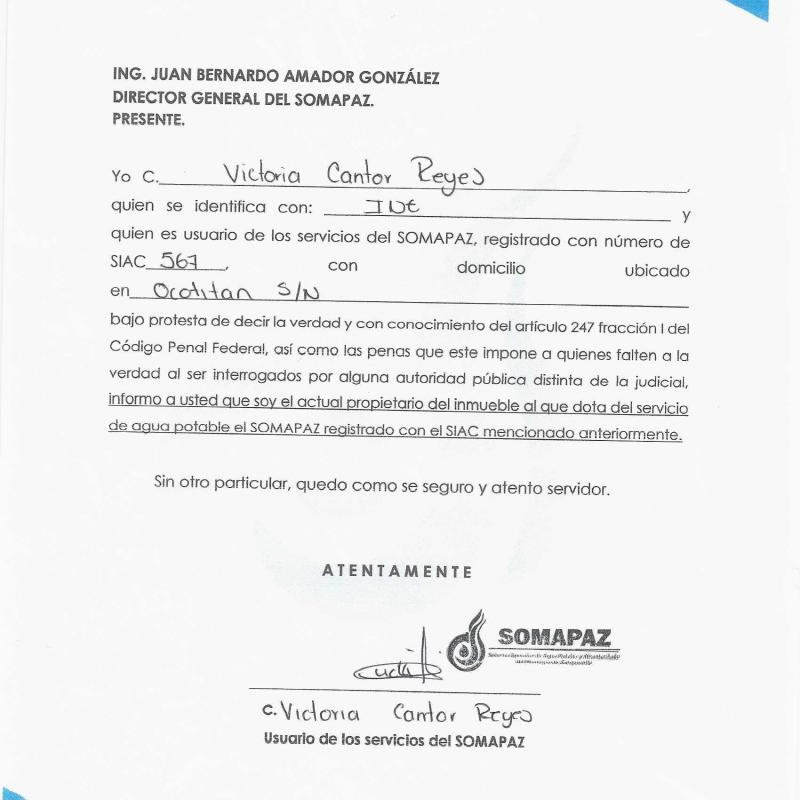 ING. JUAN BERNARDO AMADOR GONZÁLEZ
DIRECTOR GENERAL DEL SOMAPAZ.
PRESENTE.
Yo C. Victoria Cantor Reyes,
quien se identifica con: INE y
quien es usuario de los servicios del SOMAPAZ, registrado con número de
SIAC 567, con domicilio ubicado
en Ocotitan S/N
bajo protesta de decir la verdad y con conocimiento del artículo 247 fracción I del
Código Penal Federal, así como las penas que este impone a quienes falten a la
verdad al ser interrogados por alguna autoridad pública distinta de la judicial,
informo a usted que soy el actual propietario del inmueble al que dota del servicio
de agua potable el SOMAPAZ registrado con el SIAC mencionado anteriormente.
Sin otro particular, quedo como se seguro y atento servidor.
ATENTAMENTE
SOMAPAZ
C. Victoria Cantor Reyes
Usuario de los servicios del SOMAPAZ